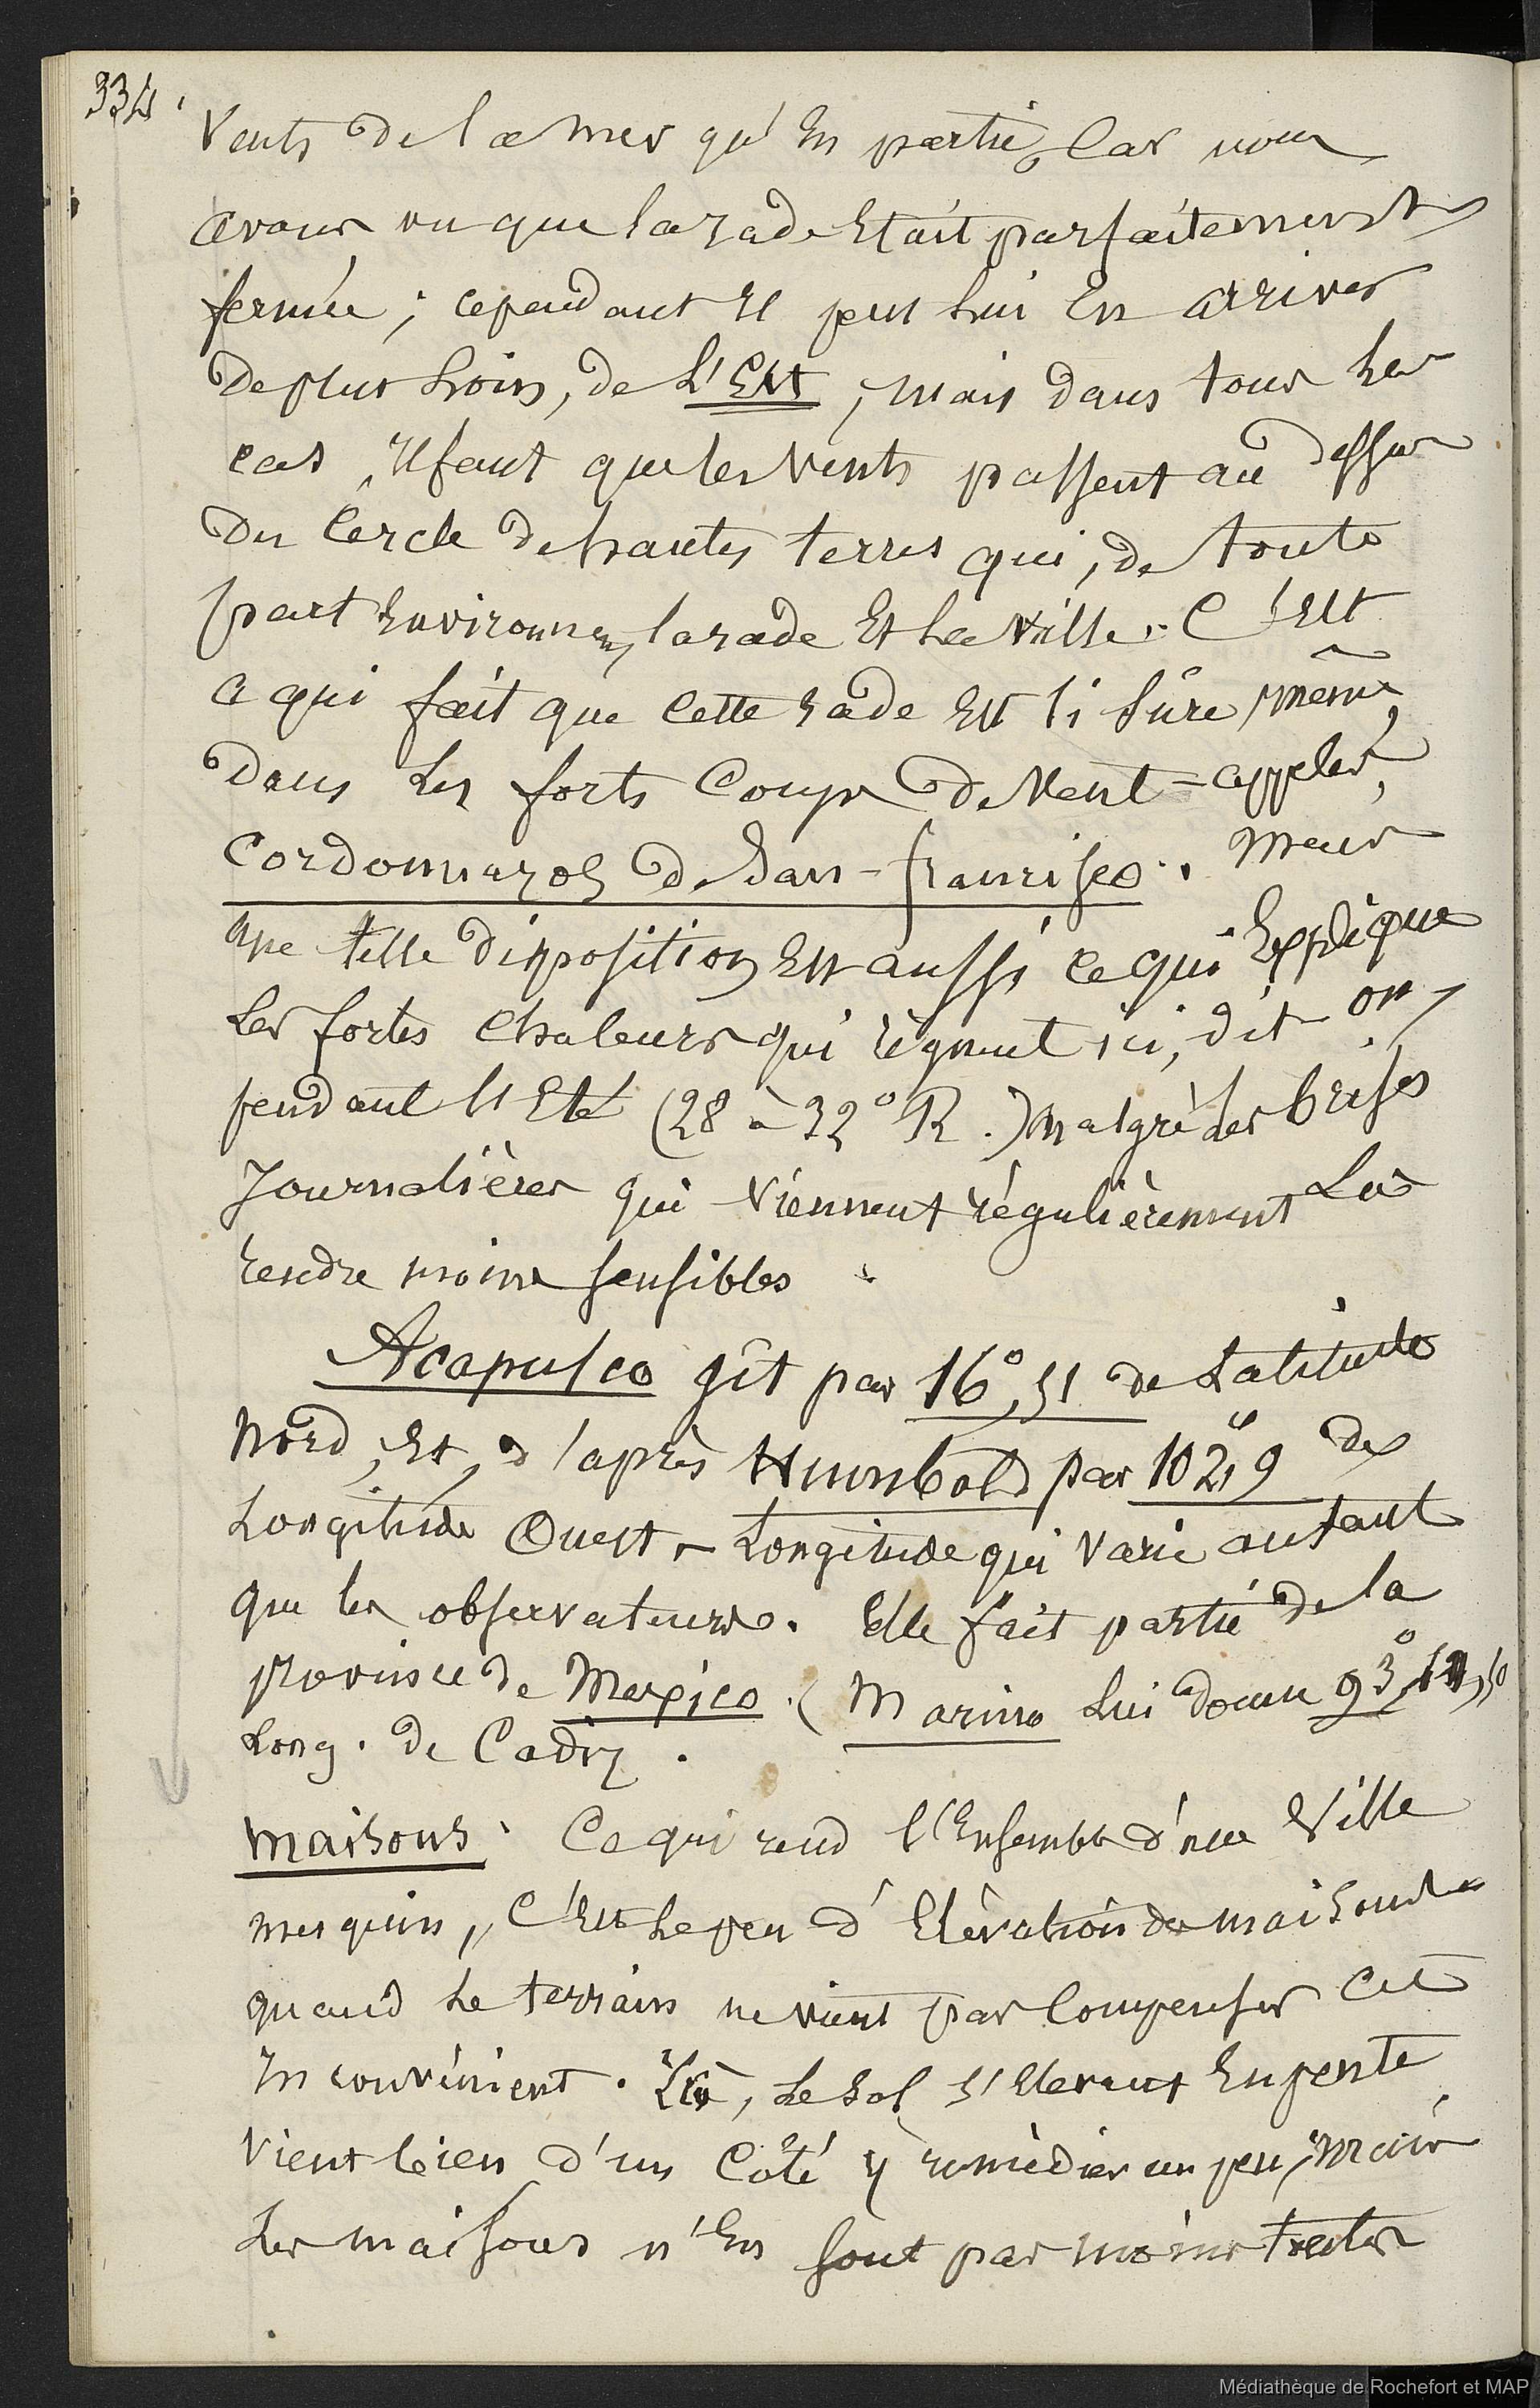 334
Vents de la mer qu'en partie, Car nous
avons vu que la rade Etait parfaitement
fermée ; cependant Il peut lui En arriver
De plus Loin, de L'Est ; mais dans tous les
cas, Il faut que les Vents passent au dessus
Du Cercle de hautes terres qui, de toute
part Environnent la rade Et La Ville. C'Est
ce qui fait que Cette rade Est si sûre, même,
Dans Les forts Coups De Vent = appelés,
Cordonnazos de San-francisco. Mais
Une telle disposition Est aussi ce qui Explique
Les fortes Chaleurs qui règnent ici, dit on,
pendant l'Eté (28 à 32° R.) malgré les brises
Journalières qui Viennent régulièrement Les
rendre moins sensibles.
Acapulco gît par 16°,51 de Latitude
Nord, Et, d'après Humbold par 102°,9 de
Longitude Ouest - Longitude qui Varie autant
que les observateurs. Elle fait partie de la
province de Mexico. (Marino Lui donne 93°
Long. de Cadiz.
Maisons. Ce qui rend l'Ensemble d'une Ville
mesquin, C'Est Le peu d'Elévation des maisons
quand Le terrain ne vient pas Compenser Cet
Inconvénient. Ici, Le Sol s'Elevant En pente
Vient bien d'un Côté y remédier un peu, Mais
Les maisons n'En sont pas moins
Médiathèque de Rochefort et MAP